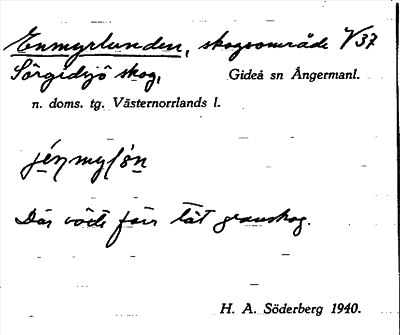 Enmyrlunden, skogsområde V37
Sörgidsjö skog, Gideå sn Ångermanl.
n. doms. tg. Västernorrlands l.
Där växte förr tät granskog.
H. A. Söderberg 1940.